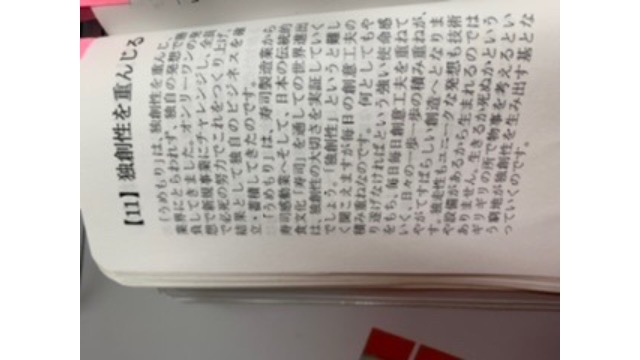 【11】独創性を重んじる
「うめもり」は、独創性を重んじ、
業界にとらわれず、独自の発想で勝
負してきました。オンリーワンの発
想で新規事業にチャレンジし、全員
で必死の努力でこれをつくり上げ、
結果として独自のビジネスを確
立・蓄積してきたのです。
「うめもり」は、寿司製造業から
寿司感動業へそして、日本の伝統的
食文化「寿司」を通しての世界進出
は、独創性の大切さを実証していく
でしょう。「独創性」というと難し
く聞こえますが毎日の創意工夫の
積み重ねなのです。 何としてもや
り遂げなければという強い使命感
をもち、毎日毎日創意工夫を重ねて
いく、日々の一歩一歩の積み重ねが、
やがてすばらしい創造へとなりま
す。独走性もユニークな発想も技術
や設備があるから生まれるのでは
ありません。生きるか死ぬかという
ギリギリの所で物事を考えるとい
う窮地が独創性を生み出す基とな
っていくのです。